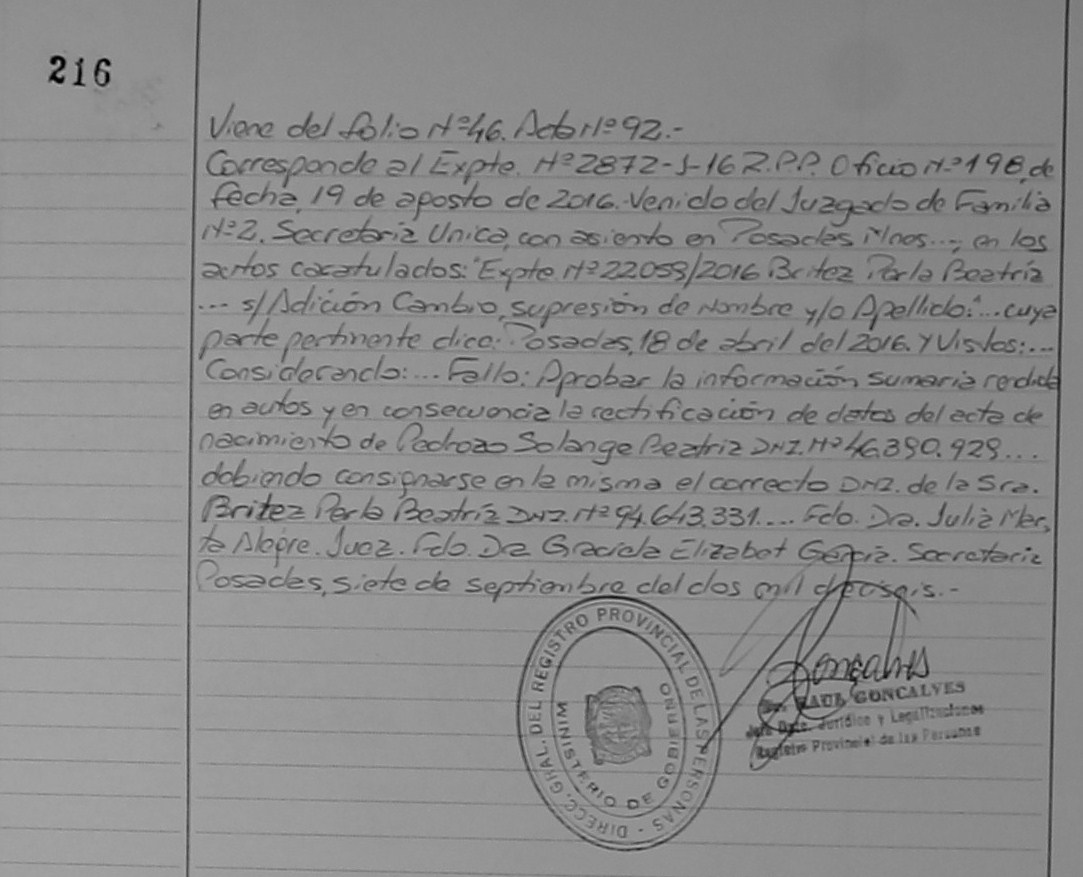 216
Viene del folio Nº46. Acta Nº92.-
Corresponde al Expte. Nº2872-J-16 R.P.P. Oficio N.º198, de
fecha, 19 de agosto de 2016.-Venido del Juzgado de Familia
Nº2. Secretaria Unica, con asiento en Posadas Mnes..., en los
autos caratulados: "Expte. Nº22053/2016 Britez Perla Beatríz
... s/ Adición Cambio, supresión de Nombre y/o Apellido."... cuya
parte pertinente dice: Posadas, 18 de abril del 2016. Y Vistos:...
Considerando:... Fallo: Aprobar la información sumaria rendida
en autos y en consecuencia la rectificación de datos del acta de
nacimiento de Pedrozo Solange Beatriz DNI. Nº46.390.929...
debiendo consignarse en la misma el correcto DNI. de la Sra.
Britez Perla Beatríz DNI. Nº94.643.331.... Fdo. Dra. Julia Mar-
ta Alegre. Juez. Fdo. Dra Graciela Elizabet Garcia. Secretaria
Posadas, siete de septiembre del dos mil dieciseis.-
DIRECC. GRAL. DEL REGISTRO PROVINCIAL DE LAS PERSONAS -
MINISTERIO DE GOBIERNO
Goncalves
RAUL GONCALVES
Jefe Dpto. Jurídico y Legalizaciones
Registro Provincial de las Personas